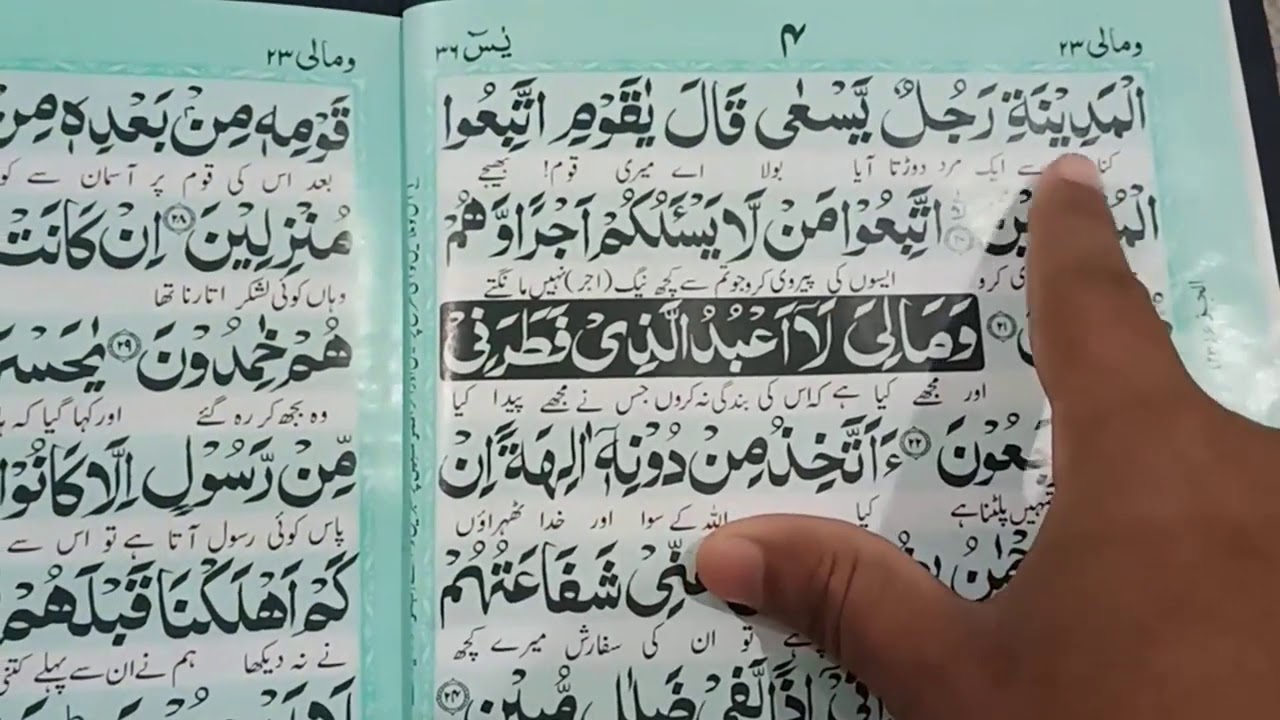 ومالی ۲۳
۴
یٰسٓ ۳۶
الْمَدِیْنَةِ رَجُلٌ یَّسْعٰی قَالَ یٰقَوْمِ اتَّبِعُوا
سے ایک مرد دوڑتا آیا بولا اے میری قوم! بھیجے
اتَّبِعُوْا مَنْ لَّا یَسْـَٔلُكُمْ اَجْرًا وَّهُمْ
کرو ایسوں کی پیروی کرو جو تم سے کچھ نیگ (اجر) نہیں مانگتے
۲۱ وَمَالِیَ لَاۤ اَعْبُدُ الَّذِیْ فَطَرَنِیْ
اور مجھے کیا ہے کہ اس کی بندگی نہ کروں جس نے مجھے پیدا کیا
۲۲ ءَاَتَّخِذُ مِنْ دُوْنِهٖۤ اٰلِهَةً اِنْ
پلٹنا ہے کیا اللہ کے سوا اور خدا ٹھہراؤں
شَفَاعَتُهُمْ
تو ان کی سفارش میرے کچھ
اِذًا لَّفِیْ ضَلٰلٍ مُّبِیْنٍ ۲۴
ومالی ۲۳
قَوْمِهٖ مِنْۢ بَعْدِهٖ مِنْ
بعد اس کی قوم پر آسمان سے کو
مُنْزِلِیْنَ ۲۸ اِنْ كَانَتْ
وہاں کوئی لشکر اتارنا تھا
هُمْ خٰمِدُوْنَ ۲۹ یٰحَسْرَ
وہ بجھ کر رہ گئے اور کہا گیا کہ
مِّنْ رَّسُوْلٍ اِلَّا كَانُوْا
پاس کوئی رسول آتا ہے تو اس سے
كَمْ اَهْلَكْنَا قَبْلَهُمْ
نے نہ دیکھا ہم نے ان سے پہلے کتنی